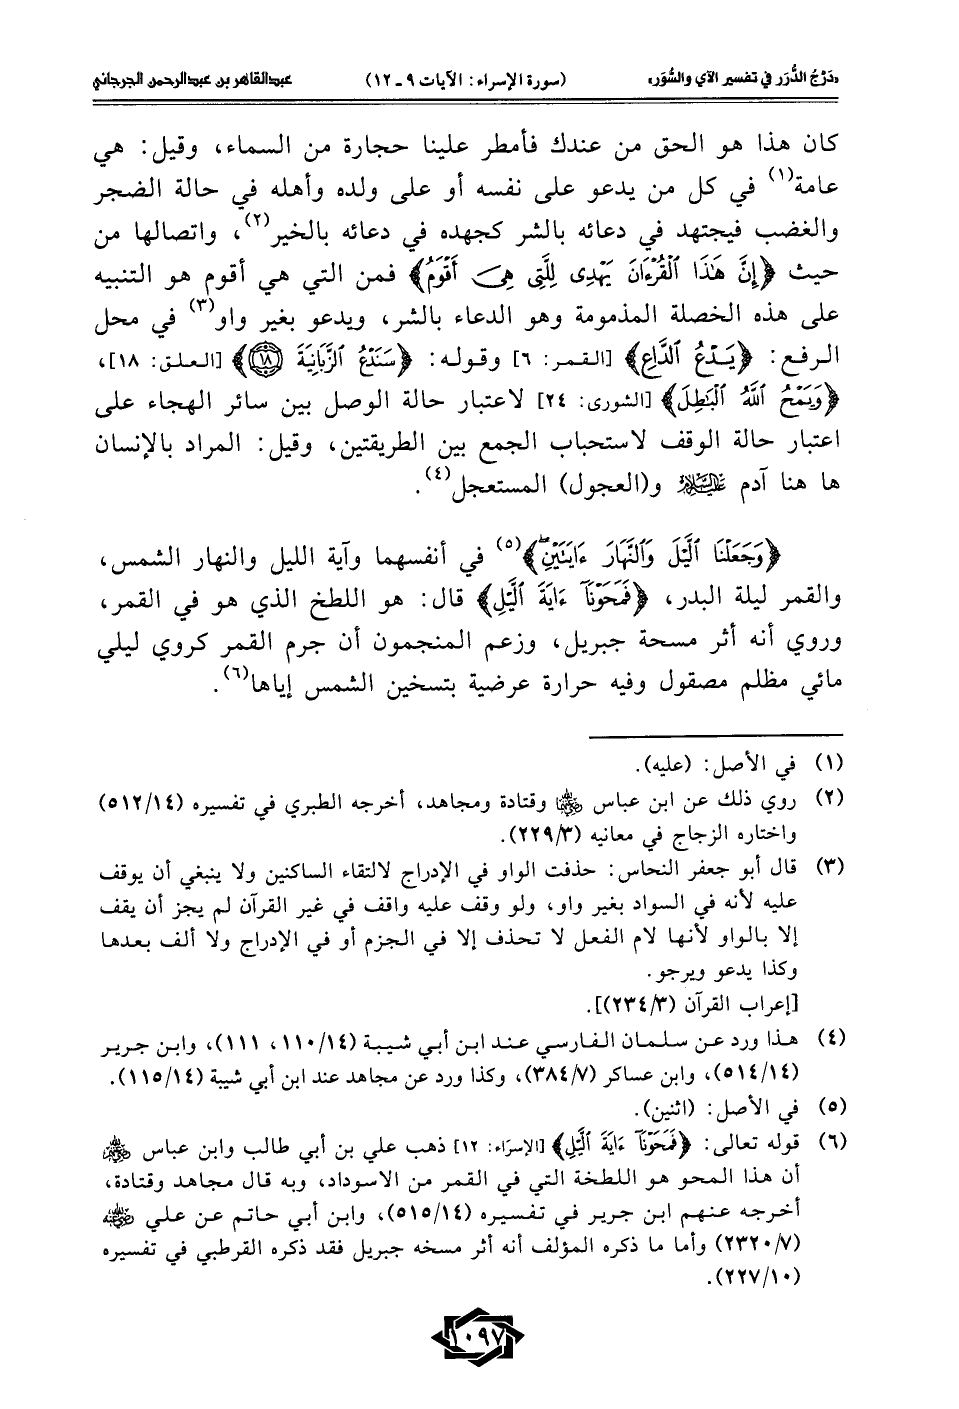 «دَرْجُ الدُّرَر في تفسير الآي والسُّوَر» (سورة الإسراء: الآيات ٩ ـ ١٢) عبدالقاهر بن عبدالرحمن الجرجاني
كان هذا هو الحق من عندك فأمطر علينا حجارة من السماء، وقيل: هي
عامة(١) في كل من يدعو على نفسه أو على ولده وأهله في حالة الضجر
والغضب فيجتهد في دعائه بالشر كجهده في دعائه بالخير(٢)، واتصالها من
حيث ﴿إِنَّ هَٰذَا ٱلْقُرْءَانَ يَهْدِى لِلَّتِى هِىَ أَقْوَمُ﴾ فمن التي هي أقوم هو التنبيه
على هذه الخصلة المذمومة وهو الدعاء بالشر، ويدعو بغير واو(٣) في محل
الرفع: ﴿يَدْعُ ٱلدَّاعِ﴾ [القمر: ٦] وقوله: ﴿سَنَدْعُ ٱلزَّبَانِيَةَ ١٨﴾ [العلق: ١٨]،
﴿وَيَمْحُ ٱللَّهُ ٱلْبَٰطِلَ﴾ [الشورى: ٢٤] لاعتبار حالة الوصل بين سائر الهجاء على
اعتبار حالة الوقف لاستحباب الجمع بين الطريقتين، وقيل: المراد بالإنسان
ها هنا آدم عليه السلام و(العجول) المستعجل(٤).
﴿وَجَعَلْنَا ٱلَّيْلَ وَٱلنَّهَارَ ءَايَتَيْنِۖ﴾(٥) في أنفسهما وآية الليل والنهار الشمس،
والقمر ليلة البدر، ﴿فَمَحَوْنَآ ءَايَةَ ٱلَّيْلِ﴾ قال: هو اللطخ الذي هو في القمر،
وروي أنه أثر مسحة جبريل، وزعم المنجمون أن جرم القمر كروي ليلي
مائي مظلم مصقول وفيه حرارة عرضية بتسخين الشمس إياها(٦).
(١) في الأصل: (عليه).
(٢) روي ذلك عن ابن عباس رضي الله عنهما وقتادة ومجاهد، أخرجه الطبري في تفسيره (٥١٢/١٤)
واختاره الزجاج في معانيه (٢٢٩/٣).
(٣) قال أبو جعفر النحاس: حذفت الواو في الإدراج لالتقاء الساكنين ولا ينبغي أن يوقف
عليه لأنه في السواد بغير واو، ولو وقف عليه واقف في غير القرآن لم يجز أن يقف
إلا بالواو لأنها لام الفعل لا تحذف إلا في الجزم أو في الإدراج ولا ألف بعدها
وكذا يدعو ويرجو.
[إعراب القرآن (٢٣٤/٣)].
(٤) هذا ورد عن سلمان الفارسي عند ابن أبي شيبة (١١٠/١٤، ١١١)، وابن جرير
(٥١٤/١٤)، وابن عساكر (٣٨٤/٧)، وكذا ورد عن مجاهد عند ابن أبي شيبة (١١٥/١٤).
(٥) في الأصل: (اثنين).
(٦) قوله تعالى: ﴿فَمَحَوْنَآ ءَايَةَ ٱلَّيْلِ﴾ [الإسراء: ١٢] ذهب علي بن أبي طالب وابن عباس رضي الله عنهم
أن هذا المحو هو اللطخة التي في القمر من الاسوداد، وبه قال مجاهد وقتادة،
أخرجه عنهم ابن جرير في تفسيره (٥١٥/١٤)، وابن أبي حاتم عن علي رضي الله عنه
(٢٣٢٠/٧) وأما ما ذكره المؤلف أنه أثر مسخه جبريل فقد ذكره القرطبي في تفسيره
(٢٢٧/١٠).
١٠٩٧